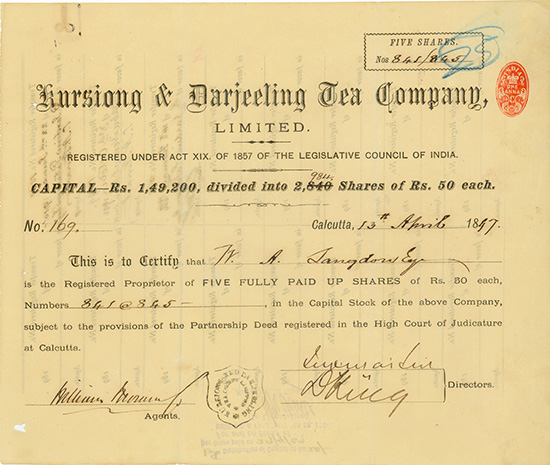 FIVE SHARES.
Nos 841/845
Kursiong & Darjeeling Tea Company,
LIMITED.
REGISTERED UNDER ACT XIX. OF 1857 OF THE LEGISLATIVE COUNCIL OF INDIA.
984
CAPITAL—Rs. 1,49,200, divided into 2,840 Shares of Rs. 50 each.
No. 169. Calcutta, 13th April 1897.
This is to Certify that W. A. Langdon Esq
is the Registered Proprietor of FIVE FULLY PAID UP SHARES of Rs. 50 each,
Numbers 841 @ 845 —, in the Capital Stock of the above Company,
subject to the provisions of the Partnership Deed registered in the High Court of Judicature
at Calcutta.
D King
Directors.
Agents.